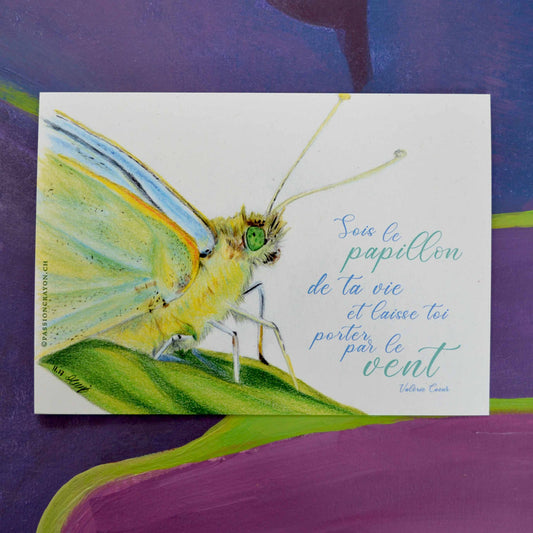 Sois le
papillon
de ta vie
et laisse toi
porter
par le
vent
Valérie Cœur
©PASSIONCRAYON.CH